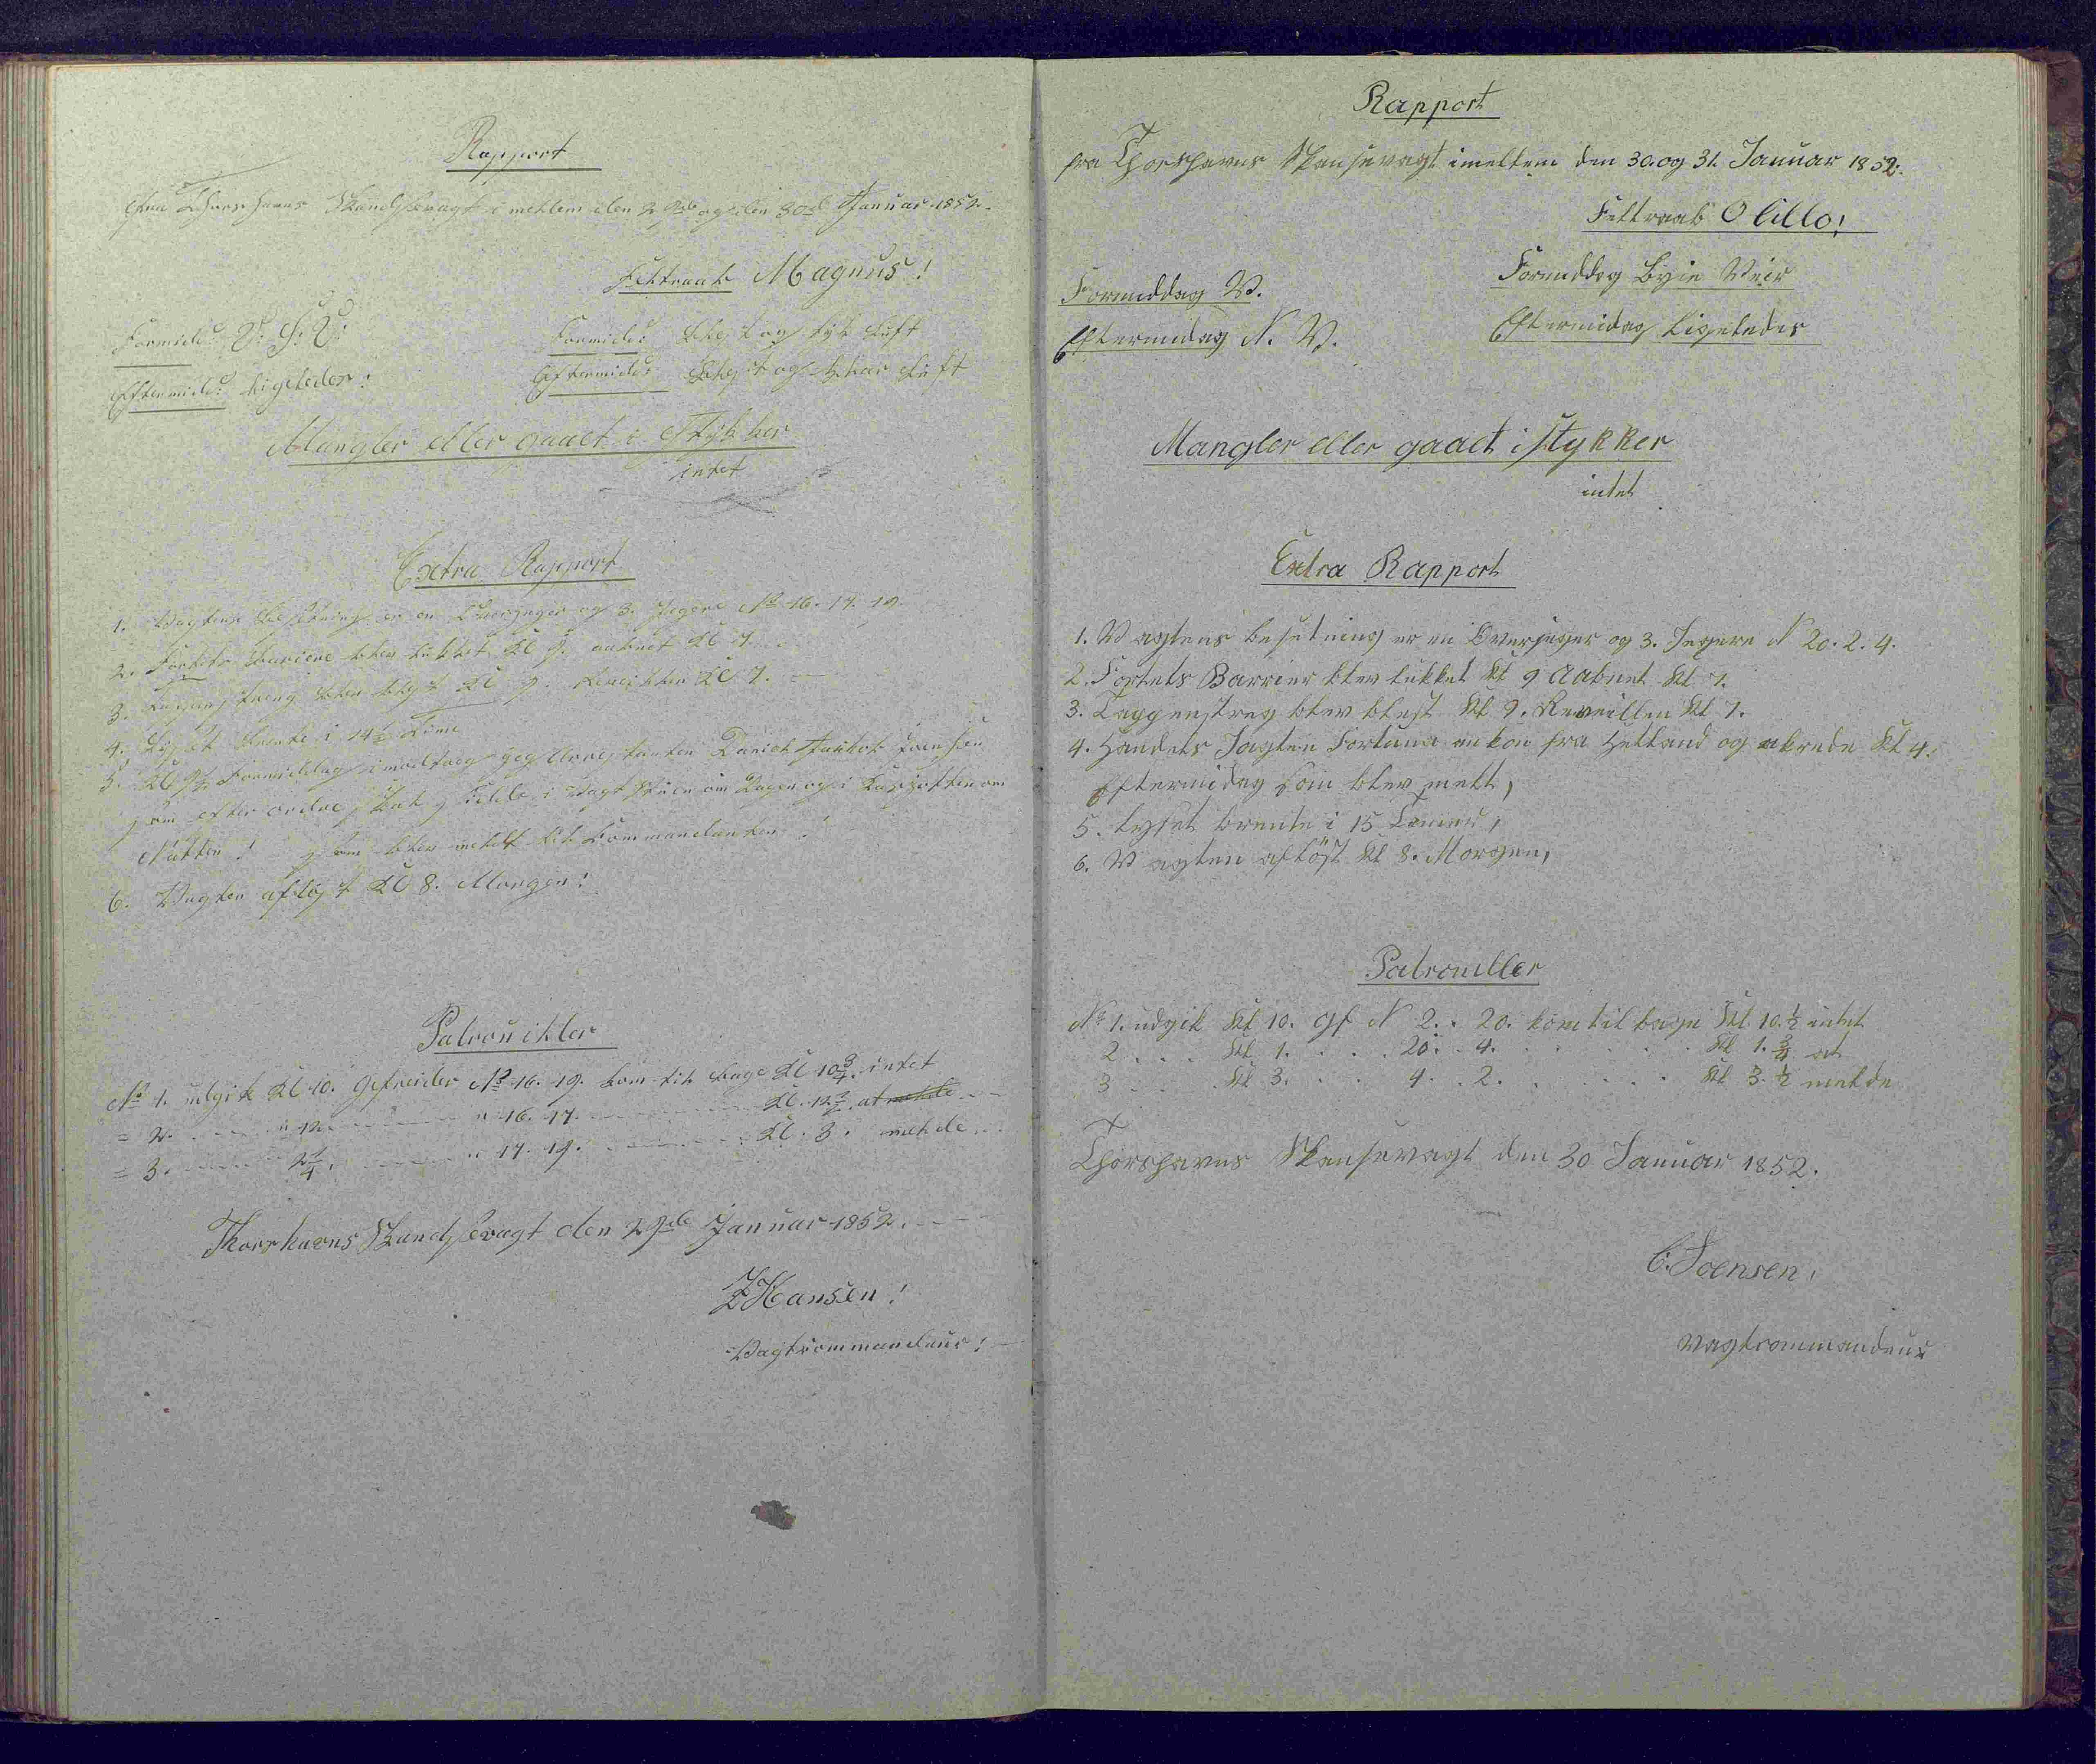 Rapport
fra Thorshavns Skandsevagt imellem den 29de og den 30de Januar 1852.
Feltraab Magnus!
Formidd: V. S. V:
Formidd: Blæst og tyk Luft
Eftermidd: ligeledes:
Eftermidd: Blæst og klar Luft
Mangler eller gaaet i Stykker
intet
Extra Rapport
1. Vagtens Besætning er en Overjæger og 3. Jægere No 16. 17. 19.
2. Fortets Bariere blev lukket Kl 9. aabnet Kl 7.
3. Tappenstreng blev blæst Kl 9. Reveillen Kl 7.
4. Lyset brente i 14½ Time
5. Kl 9½ Formiddag imodtog jeg Arrestanten Daniel Jacob Svensen
som efter ordre skulde sidde i Vagtstuen om Dagen og i Kasjotten om
Natten! som blev meldt til Kommandanten!
6. Vagten afløst Kl 8. Morgen!
Patrouiller
No 1. udgik Kl 10. Gefreider No 16. 19. kom tilbage Kl 10¾. intet
= 2. " 12. " 16. 17. Kl. 12½. at melde
= 3. " 2¼. " 17. 19. Kl. 3. melde
Thorshavns Skandsevagt den 29de Januar 1852.
Z Hansen!
Vagtcommandeur!
Rapport
fra Thorshavns Skansevagt imellem den 30. og 31. Januar 1852.
Feltraab Olillo!
Formiddag V.
Formiddag Byie Veir
Eftermidag N. V.
Eftermidag ligeledes
Mangler eller gaaet i stykker
intet
Extra Rapport
1. Vagtens besetning er en Overjeger og 3. Jegere N 20. 2. 4.
2. Fortets Barrier blev lukket Kl 9 Aabnet Kl 7.
3. Tappenstreg blev blest Kl 9. Reveillen Kl 7.
4. Handels Jagten Fortuna ankon fra Hetland og akrede Kl 4.
Eftermidag som blev melt,
5. Lyset brente i 15 Timer,
6. Vagten afløst Kl 8. Morgen,
Patrouiller
No 1. udgik Kl 10. Gf N 2. . 20. kom tilbage Kl. 10.½ intet
2 . . . Kl 1. . . . 20. . 4. . . . . . Kl 1.¾ at
3 . . . Kl 3. . . 4. . 2. . . . . . Kl 3.½ melde
Thorshavns Skansevagt den 30 Januar 1852.
C. Joensen,
Vagtcommandeur